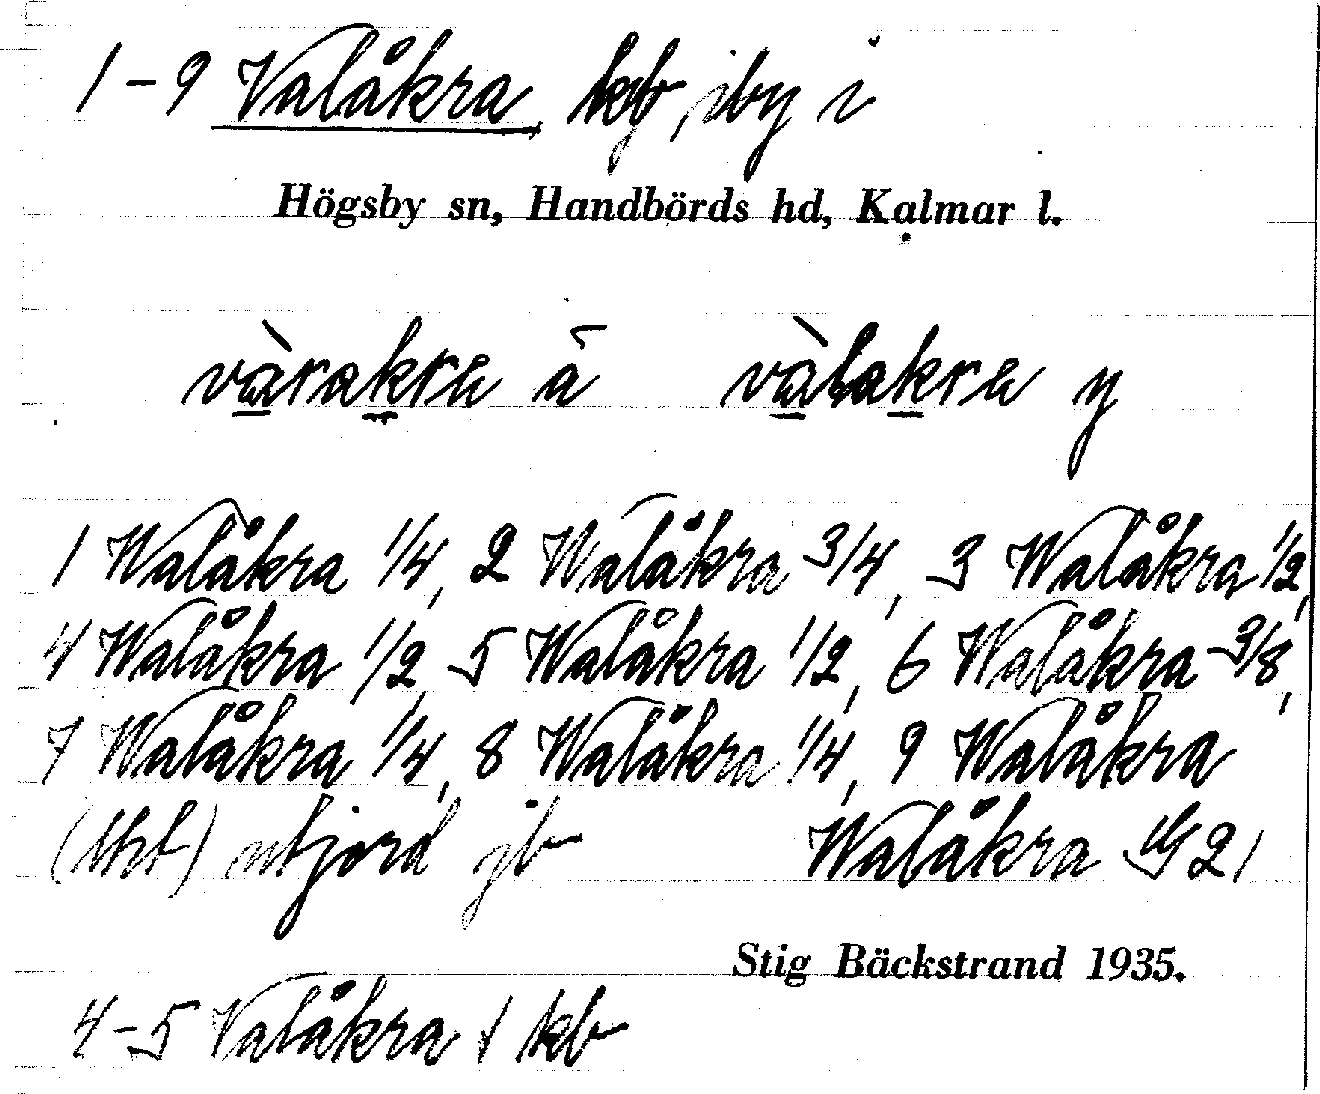 1–9 Valåkra kb, jby i
Högsby sn, Handbörds hd, Kalmar l.
vàrakra ä vàlakra y
1 Walåkra 1/4, 2 Walåkra 3/4, 3 Walåkra 1/2,
4 Walåkra 1/2, 5 Walåkra 1/2, 6 Walåkra 3/8,
7 Walåkra 1/4, 8 Walåkra 1/4, 9 Walåkra
utjord jb Walåkra 21
Stig Bäckstrand 1935.
4–5 Valåkra kb